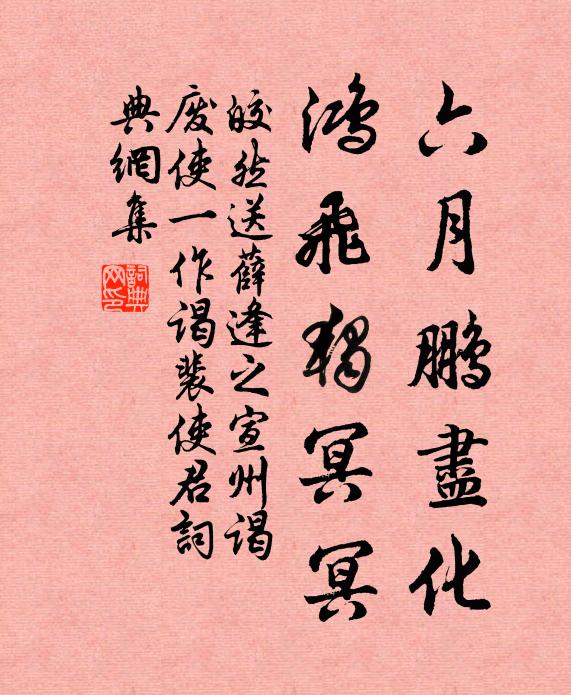 六月鵬盡化
鴻飛獨冥冥
皎然送薛逢之宣州謁
废使一作谒裴使君詞
典網集
詞典网印